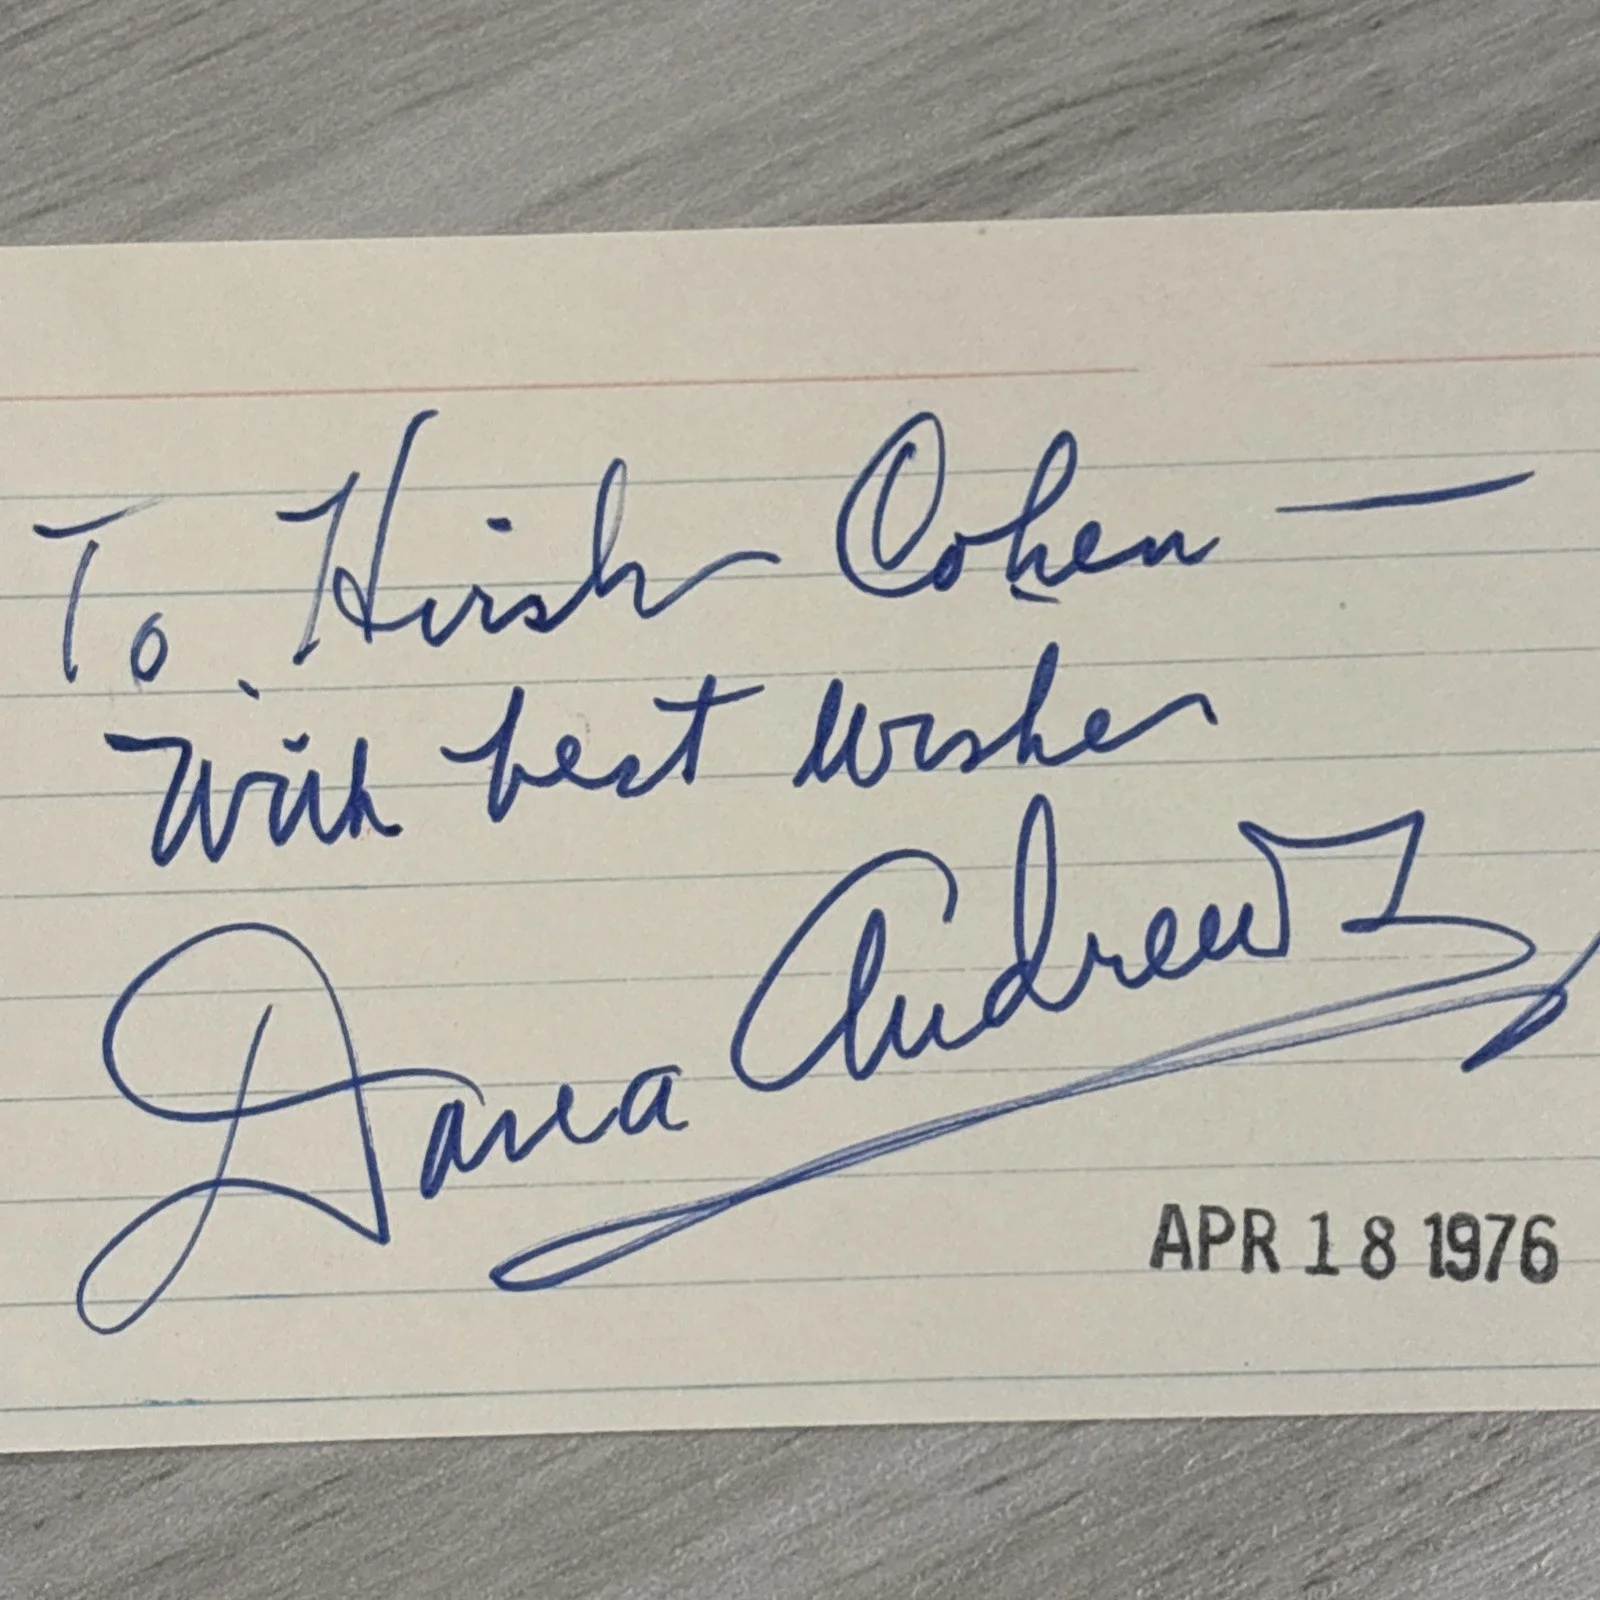 To Hirsh Cohen —
With best wishes
Dana Andrews
APR 18 1976